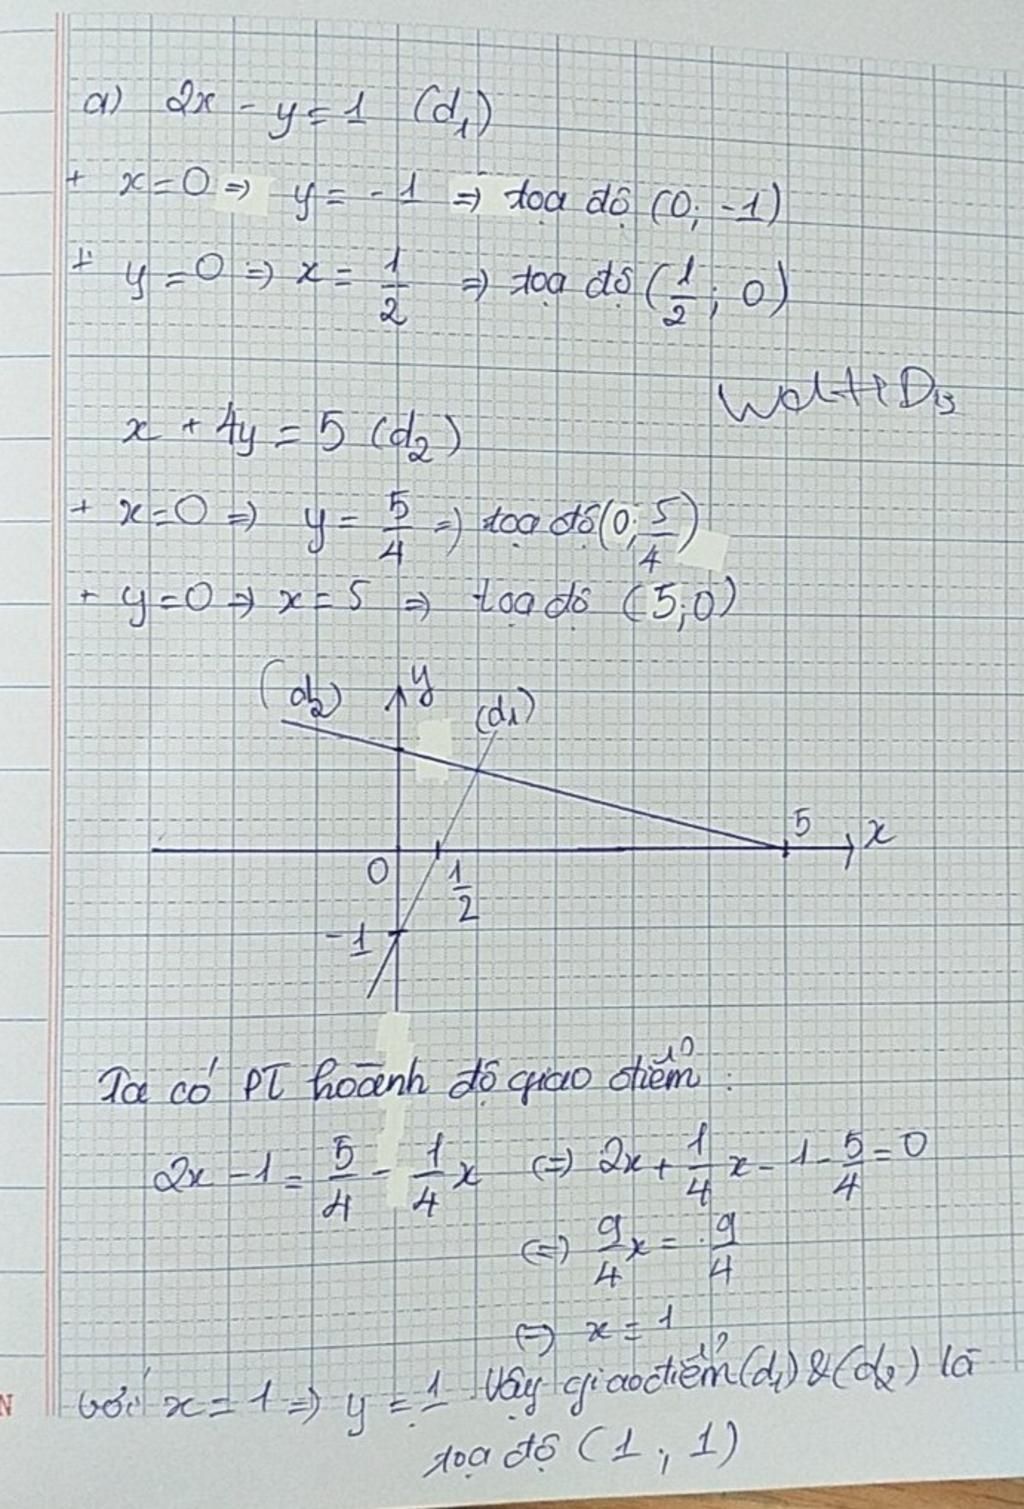 a) 2x - y = 1 (d₁)
+ x = 0 => y = -1 => tọa độ (0; -1)
+ y = 0 => x = 1/2 => tọa độ (1/2; 0)
x + 4y = 5 (d₂)
+ x = 0 => y = 5/4 => tọa độ (0; 5/4)
+ y = 0 => x = 5 => tọa độ (5; 0)
(d₂) y (d₁)
5 x
0 1/2
-1
Ta có PT hoành độ giao điểm :
2x - 1 = 5/4 - 1/4 x (=) 2x + 1/4 x - 1 - 5/4 = 0
(=) 9/4 x = 9/4
(=) x = 1
với x = 1 => y = 1 Vậy giao điểm (d₁) & (d₂) là
tọa độ (1; 1)
N